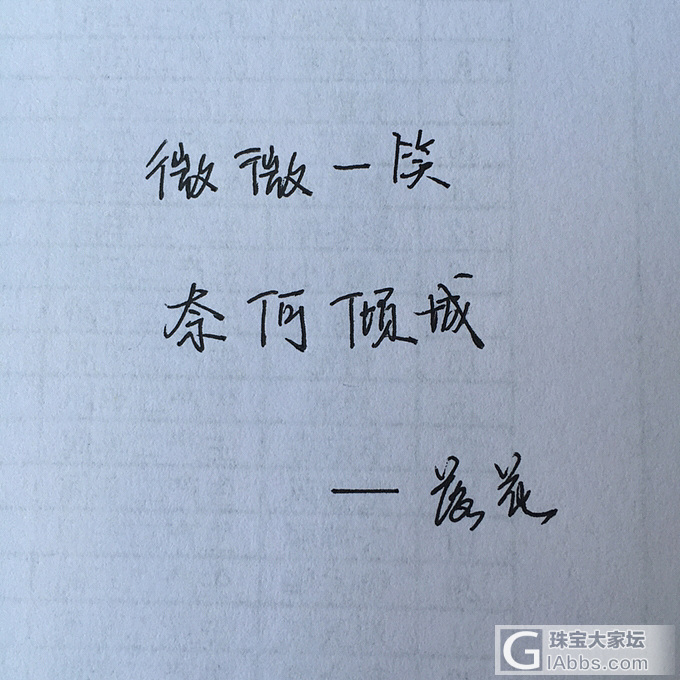 微微一笑
奈何倾城
— 落花
珠宝大家坛
GIAbbs.com